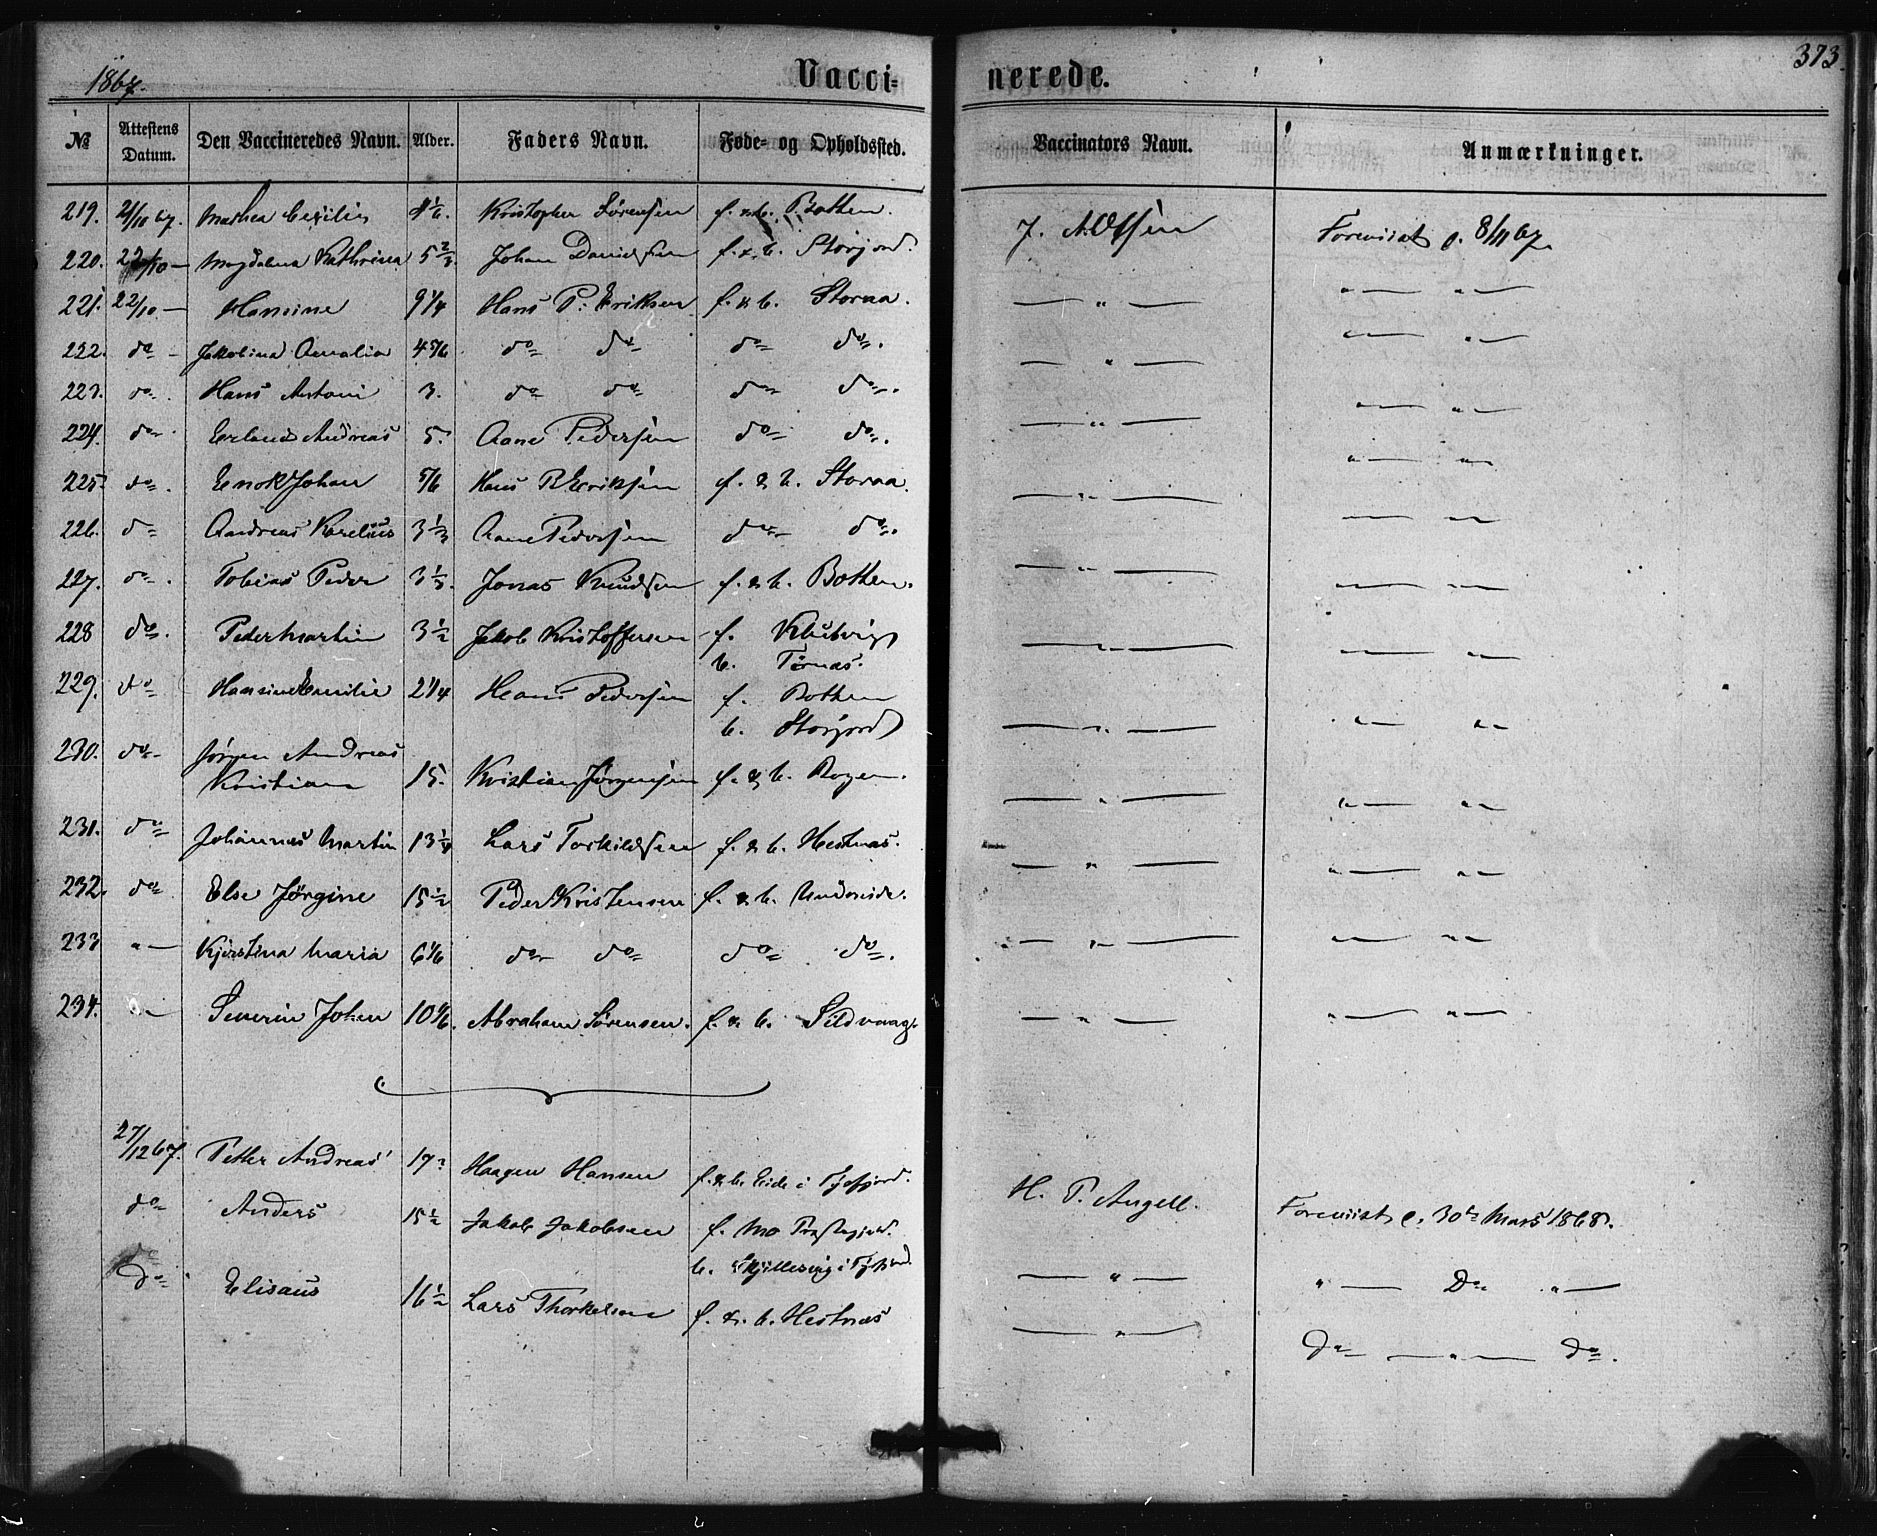 1867. Vacci= nerede. 373.
№ Attestens Datum. Den Vaccineredes Navn. Alder. Faders Navn. Føde- og Opholdssted. Vaccinators Navn. Anmærkninger.
219. 21/10 67. Mathea Cecilie 4 1/6. Kristopher Sørensen f. & b. Botten. J. A. Olsen Foreviist p. 8/11 67.
220. 22/10 — Magdalena Kathrina 5 2/3. Johan Danielsen f. & b. Storjord.
221. 22/10 — Hansine 9 1/4 Hans P. Eriksen f. & b. Storaa. — " — " — " —
222. do — Jakobina Amalia 4 5/6 do do do do. — " — " — " —
223. do. Hans Antoni 3. do do do do. — " — " — " —
224. do Erland Andreas 5. Aane Pedersen do do.
225. do. Enok Johan 5/6 Hans P. Eriksen f. & b. Storaa. — " — " — " —
226. do Andreas Korelius 3 1/3 Aane Pedersen do do. " — " "
227. do. Tobias Peder 3 1/3. Jonas Knudsen f. & b. Botten. — " — " — " "
228 do. Peder Martin 3 1/2 Jakob Kristoffersen f. Klubvig — " — " — " "
b. Tørnæs.
229. do Hansine Emilie 2 1/4 Hans Pedersen f. Botten
b. Storjord — " — " — " "
230. do Jørgen Andreas
Kristian 15. Kristian Jørgensen f. & b. Rogen. — " — " — " "
231. do Johannes Martin 13 1/4 Lars Torkildsen f. & b. Hestnæs. — " — " — " "
232. do. Else Jørgine 15 1/2 Peder Kristensen f. & b. Undereide.
233 " — Kjerstina Maria 6 1/6 do do do do. — " — " — " "
234. " — Severin Johan 10 1/6. Abraham Sørensen. f. & b. Sildvaag. — " — " — " "
27/12 67. Petter Andreas 17. Haagen Hansen f. & b. Eide i Tysfjord. H. P. Angell. Foreviist p. 30te Mars 1868.
do Anders 15 1/2 Jakob Jakobsen f. Mo Præstegjeld.
do b. i Tysfjord — " — " — Do " —
do Elisæus 16 1/2 Lars Thorkelsen f. & b. Hestnæs — " — Do — " — do.